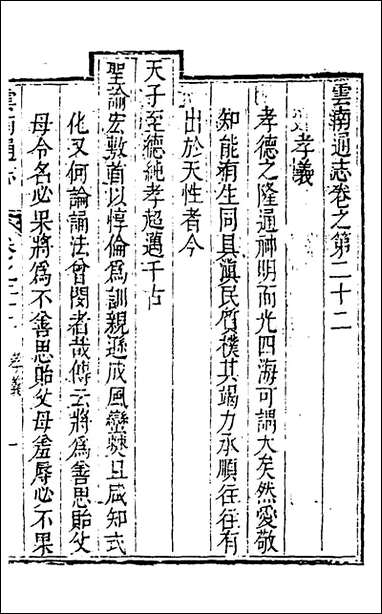 雲南通志卷之第二十二
孝義
孝德之隆通神明而光四海可謂大矣然愛敬
知能有生同具滇民質樸其竭力承順往往有
出於天性者今
天子至德純孝超邁千古
聖諭宏敷首以惇倫為訓親遜成風蠻僰且咸知式
化又何論誦法曾閔者哉傳云將為善思貽父
母令名必果將為不善思貽父母羞辱必不果
雲南通志
孝義
一